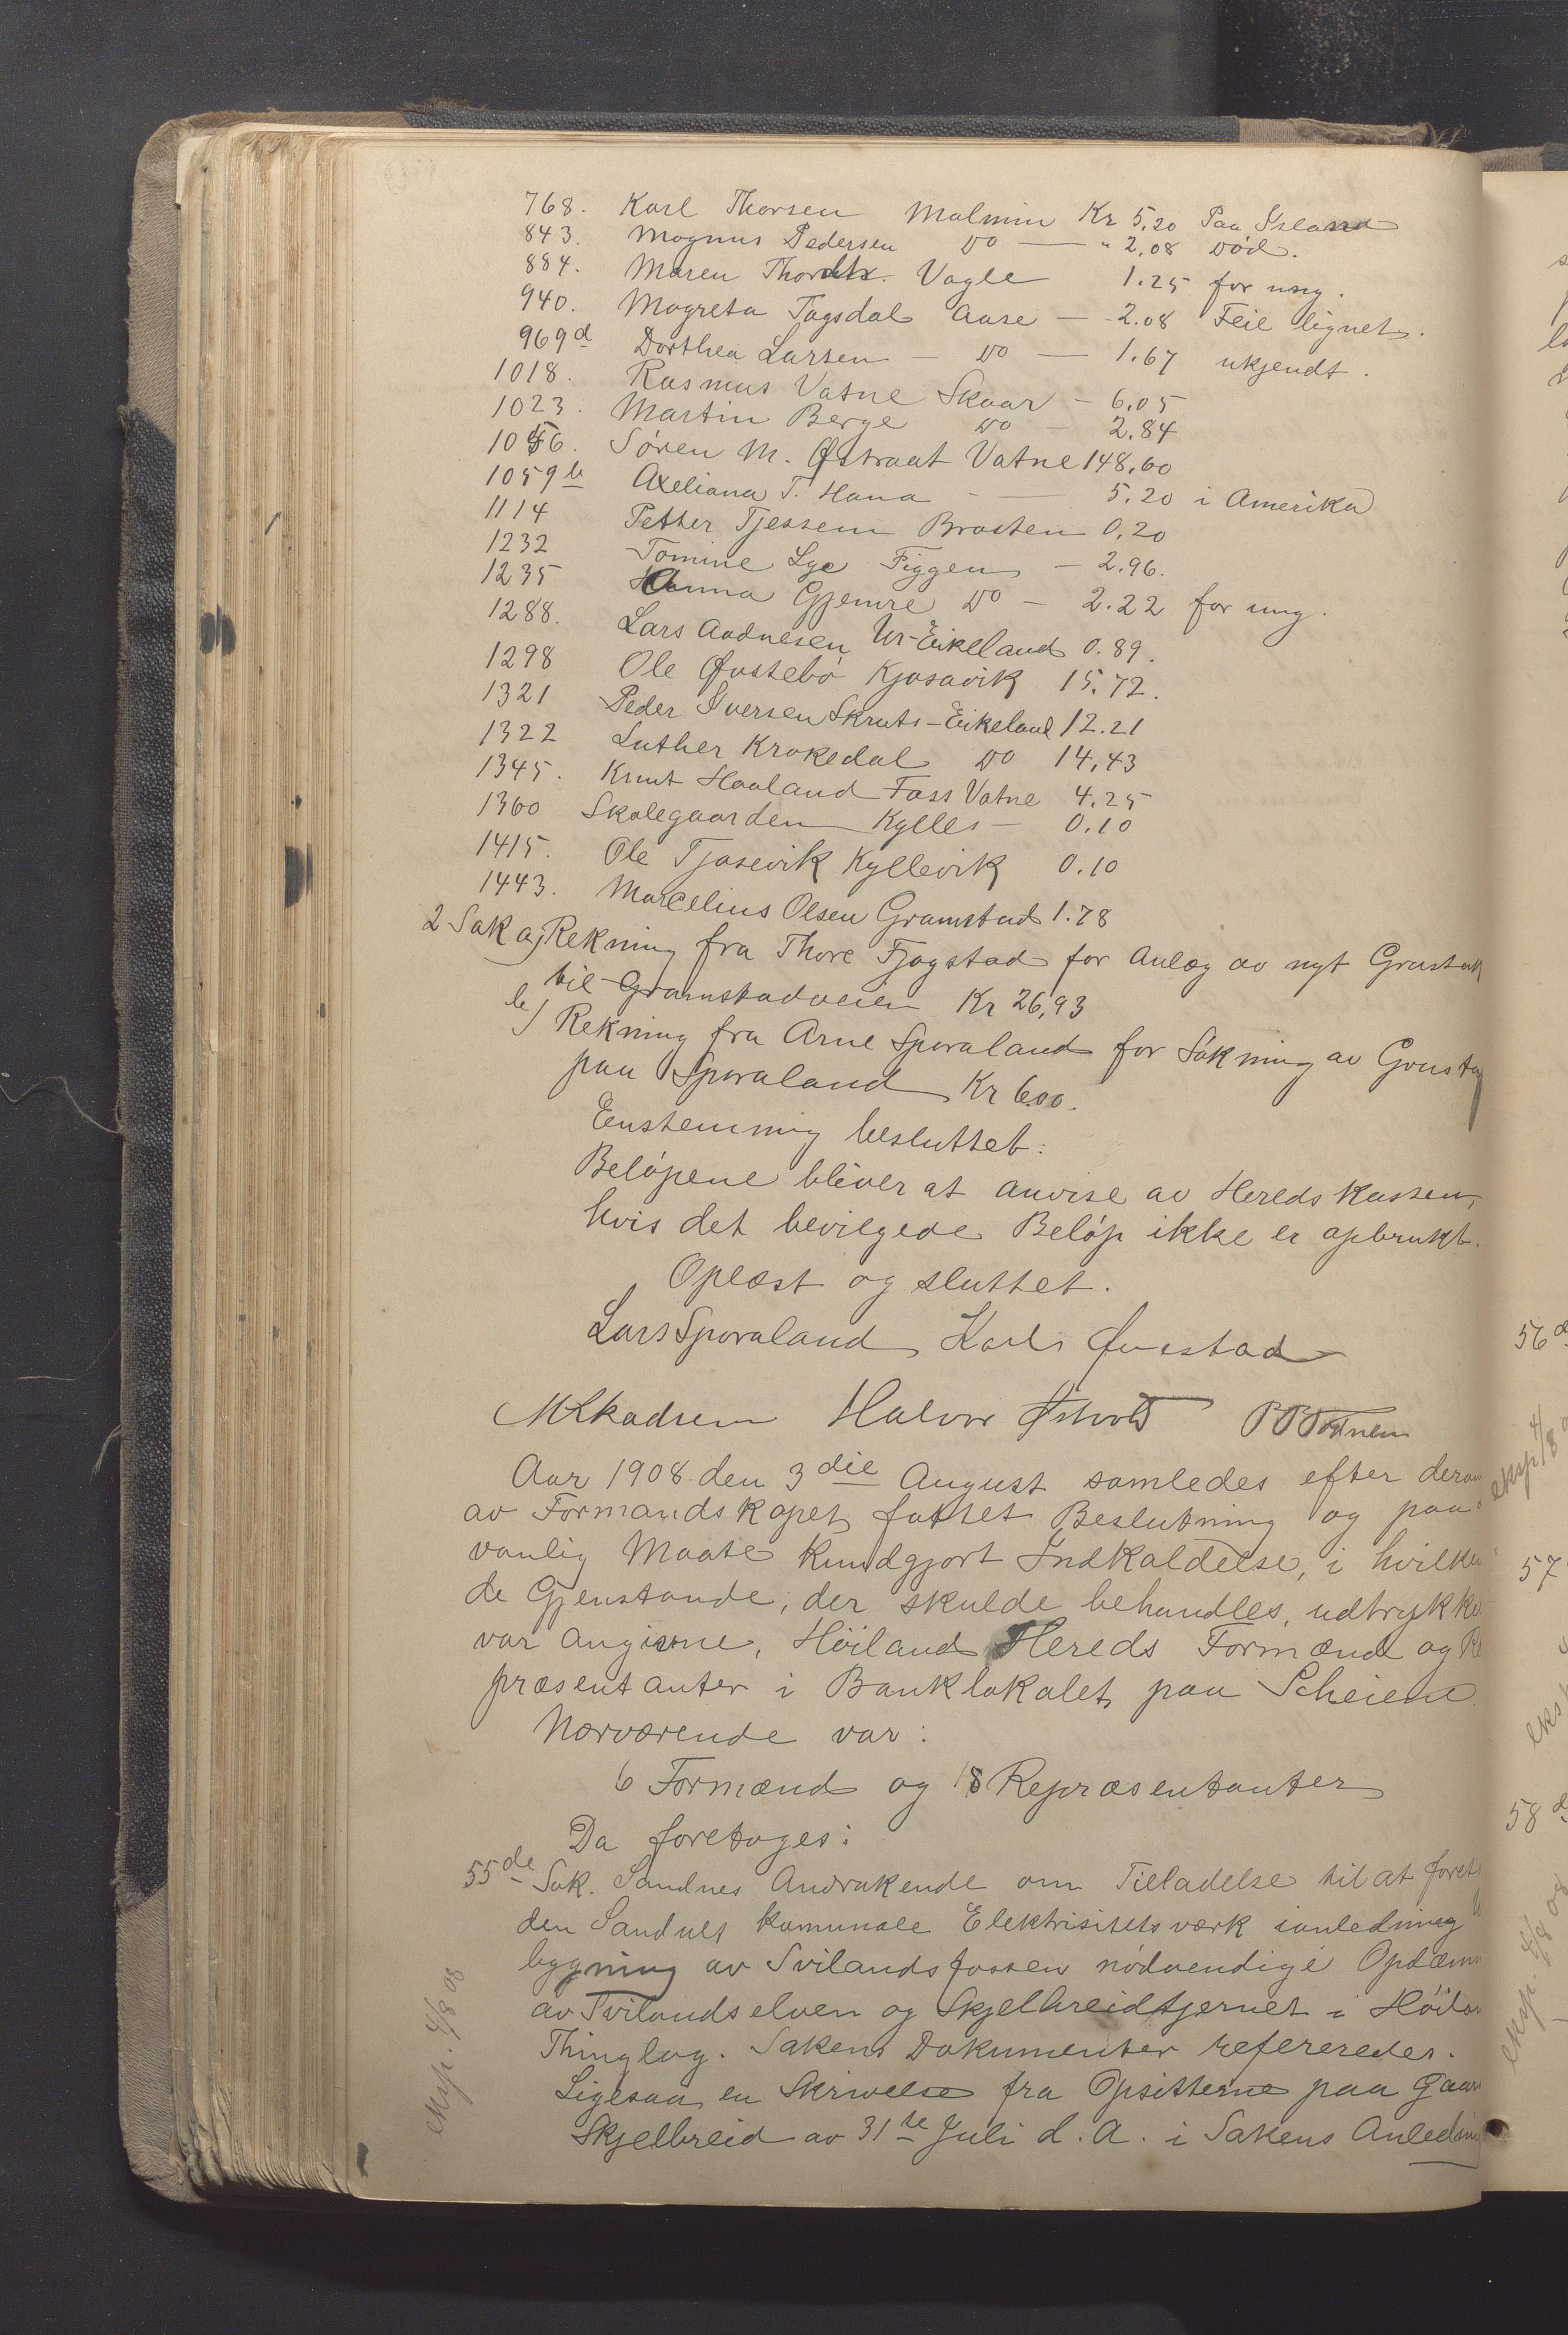 768. Karl Thorsen Malmin Kr 5,20 Paa Island
843. Magnus Pedersen Do — " 2,08 Død.
884. Maren Thordtr. Vagle 1.25 for ung.
940. Magreta Tagsdal Aase — 2.08 Feil lignet.
969d Dorthea Larsen — Do — 1.67 ukjendt.
1018. Rasmus Vatne Skaar — 6,05
1023. Martin Berge Do — 2,84
1056. Søren M. Østraat Vatne 148,60
1059b Axeliana T. Hana - — 5,20 i Amerika
1114 Petter Tjessem Brasten 0,20
1232 Tomine Lye Figgen — 2.96.
1235 Hanna Gjemre Do — 2.22 for ung.
1288. Lars Aadnesen Ur-Eikeland 0.89.
1298 Ole Øvstebø Kjosavik 15,72.
1321 Peder Iversen Skruts-Eikeland 12.21
1322 Luther Krakedal Do 14,43
1345. Knut Haaland Foss Vatne 4,25
1360 Skolegaarden Kylles — 0.10
1415. Ole Tjosevik Kyllevik 0.10
1443. Marcelius Olsen Gramstad 1.78
2 Sak a) Rekning fra Thore Fjogstad for Anlæg av nyt Grustak
til Gramstadveien Kr 26,93
b) Rekning fra Arne Sporaland for Søkning av Grustag
paa Sporaland Kr 6.00.
Eenstemmig besluttet:
Beløpene bliver at anvise av Heredskassen,
hvis det bevilgede Beløp ikke er opbrukt.
Oplæst og sluttet.
Lars Sporaland Karl Øvestad
M Skadsem Halvor Østvold
Aar 1908 den 3die August samledes efter deraa
av Formandskapet fattet Beslutning og paa
vanlig Maate kundgjort Indkaldelse, i hvilke
de Gjenstande, der skulde behandles, udtrykke
var angivne, Høiland Hereds Formænd og Re
præsentanter i Banklokalet paa Scheiene.
Nærværende var:
6 Formænd og 18 Repræsentanter
Da foretoges:
55de Sak. Sandnes Andrakende om Tilladelse til at foret
den Sandnes komunale Elektrisitetsværk ianledning
bygning av Svilandsfossen nødvendige Opdæm
av Svilandselven og Skjelbreidtjernet i Høila
Thinglag. Sakens Dokumenter refereredes.
Ligesaa en Skrivelse fra Opsitterne paa Gaar
Skjelbreid av 31te Juli d. A. i Sakens Anledni
eksp. 4/8 08
56d
eksp 4/8 0
57
58d
eksp. 4/8 08